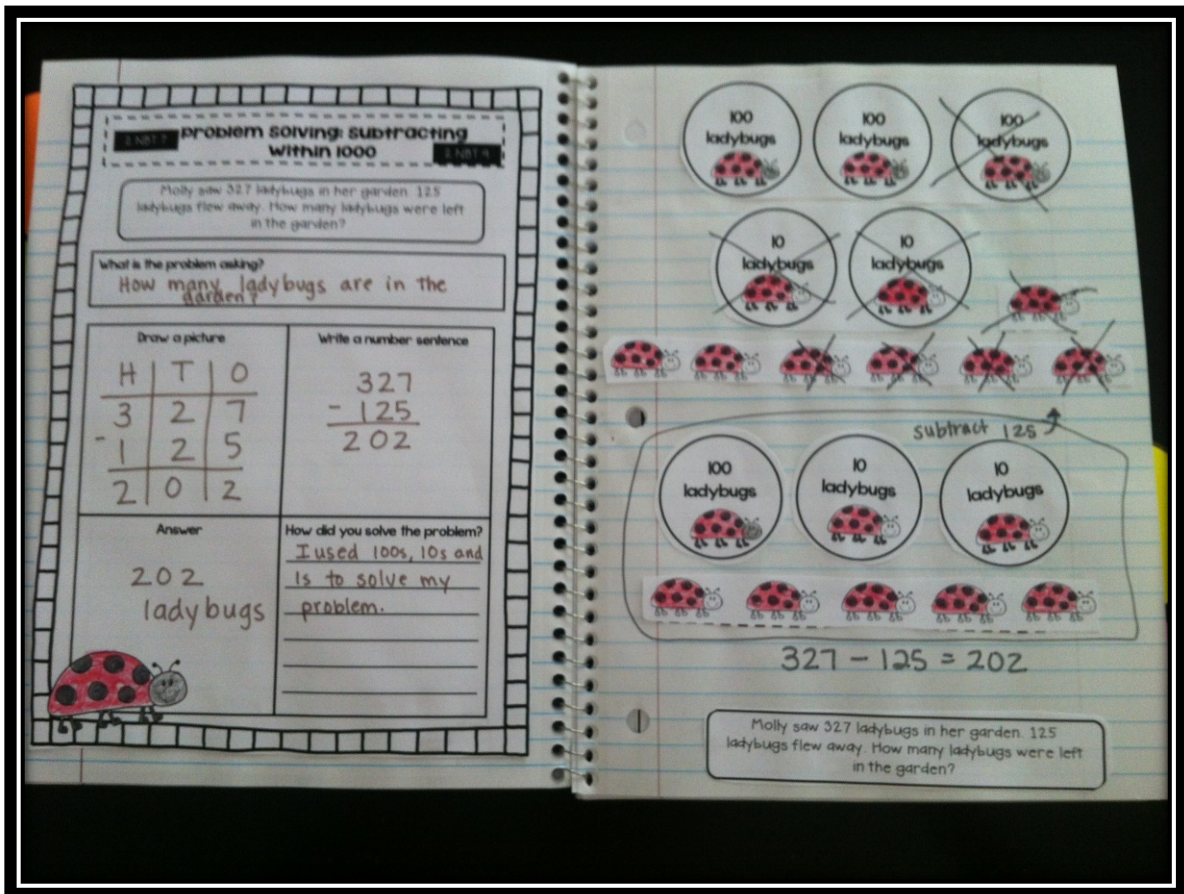 2.NBT.7
Problem Solving: Subtracting
Within 1000
2.NBT.9
Molly saw 327 ladybugs in her garden. 125
ladybugs flew away. How many ladybugs were left
in the garden?
What is the problem asking?
How many ladybugs are in the
garden?
Draw a picture
H T O
3 2 7
- 1 2 5
2 0 2
Write a number sentence
327
- 125
202
Answer
202
ladybugs
How did you solve the problem?
I used 100s, 10s and
1s to solve my
problem.
100
ladybugs
100
ladybugs
100
ladybugs
10
ladybugs
10
ladybugs
subtract 125
100
ladybugs
10
ladybugs
10
ladybugs
327 - 125 = 202
Molly saw 327 ladybugs in her garden. 125
ladybugs flew away. How many ladybugs were left
in the garden?